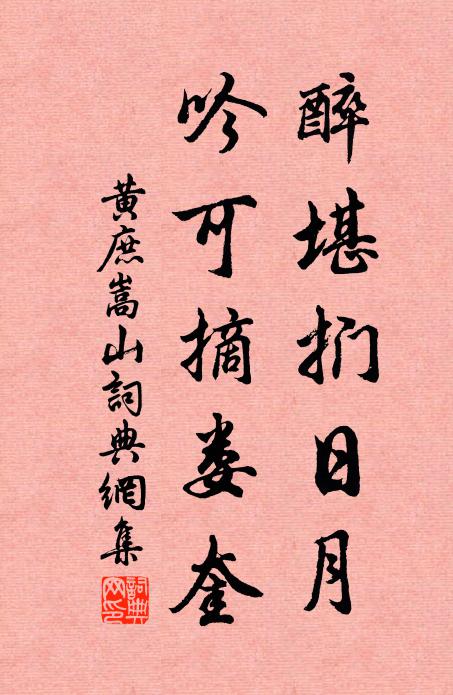 醉堪捫日月
吟可摘婁奎
黃庶嵩山詞典網集
詞典网印